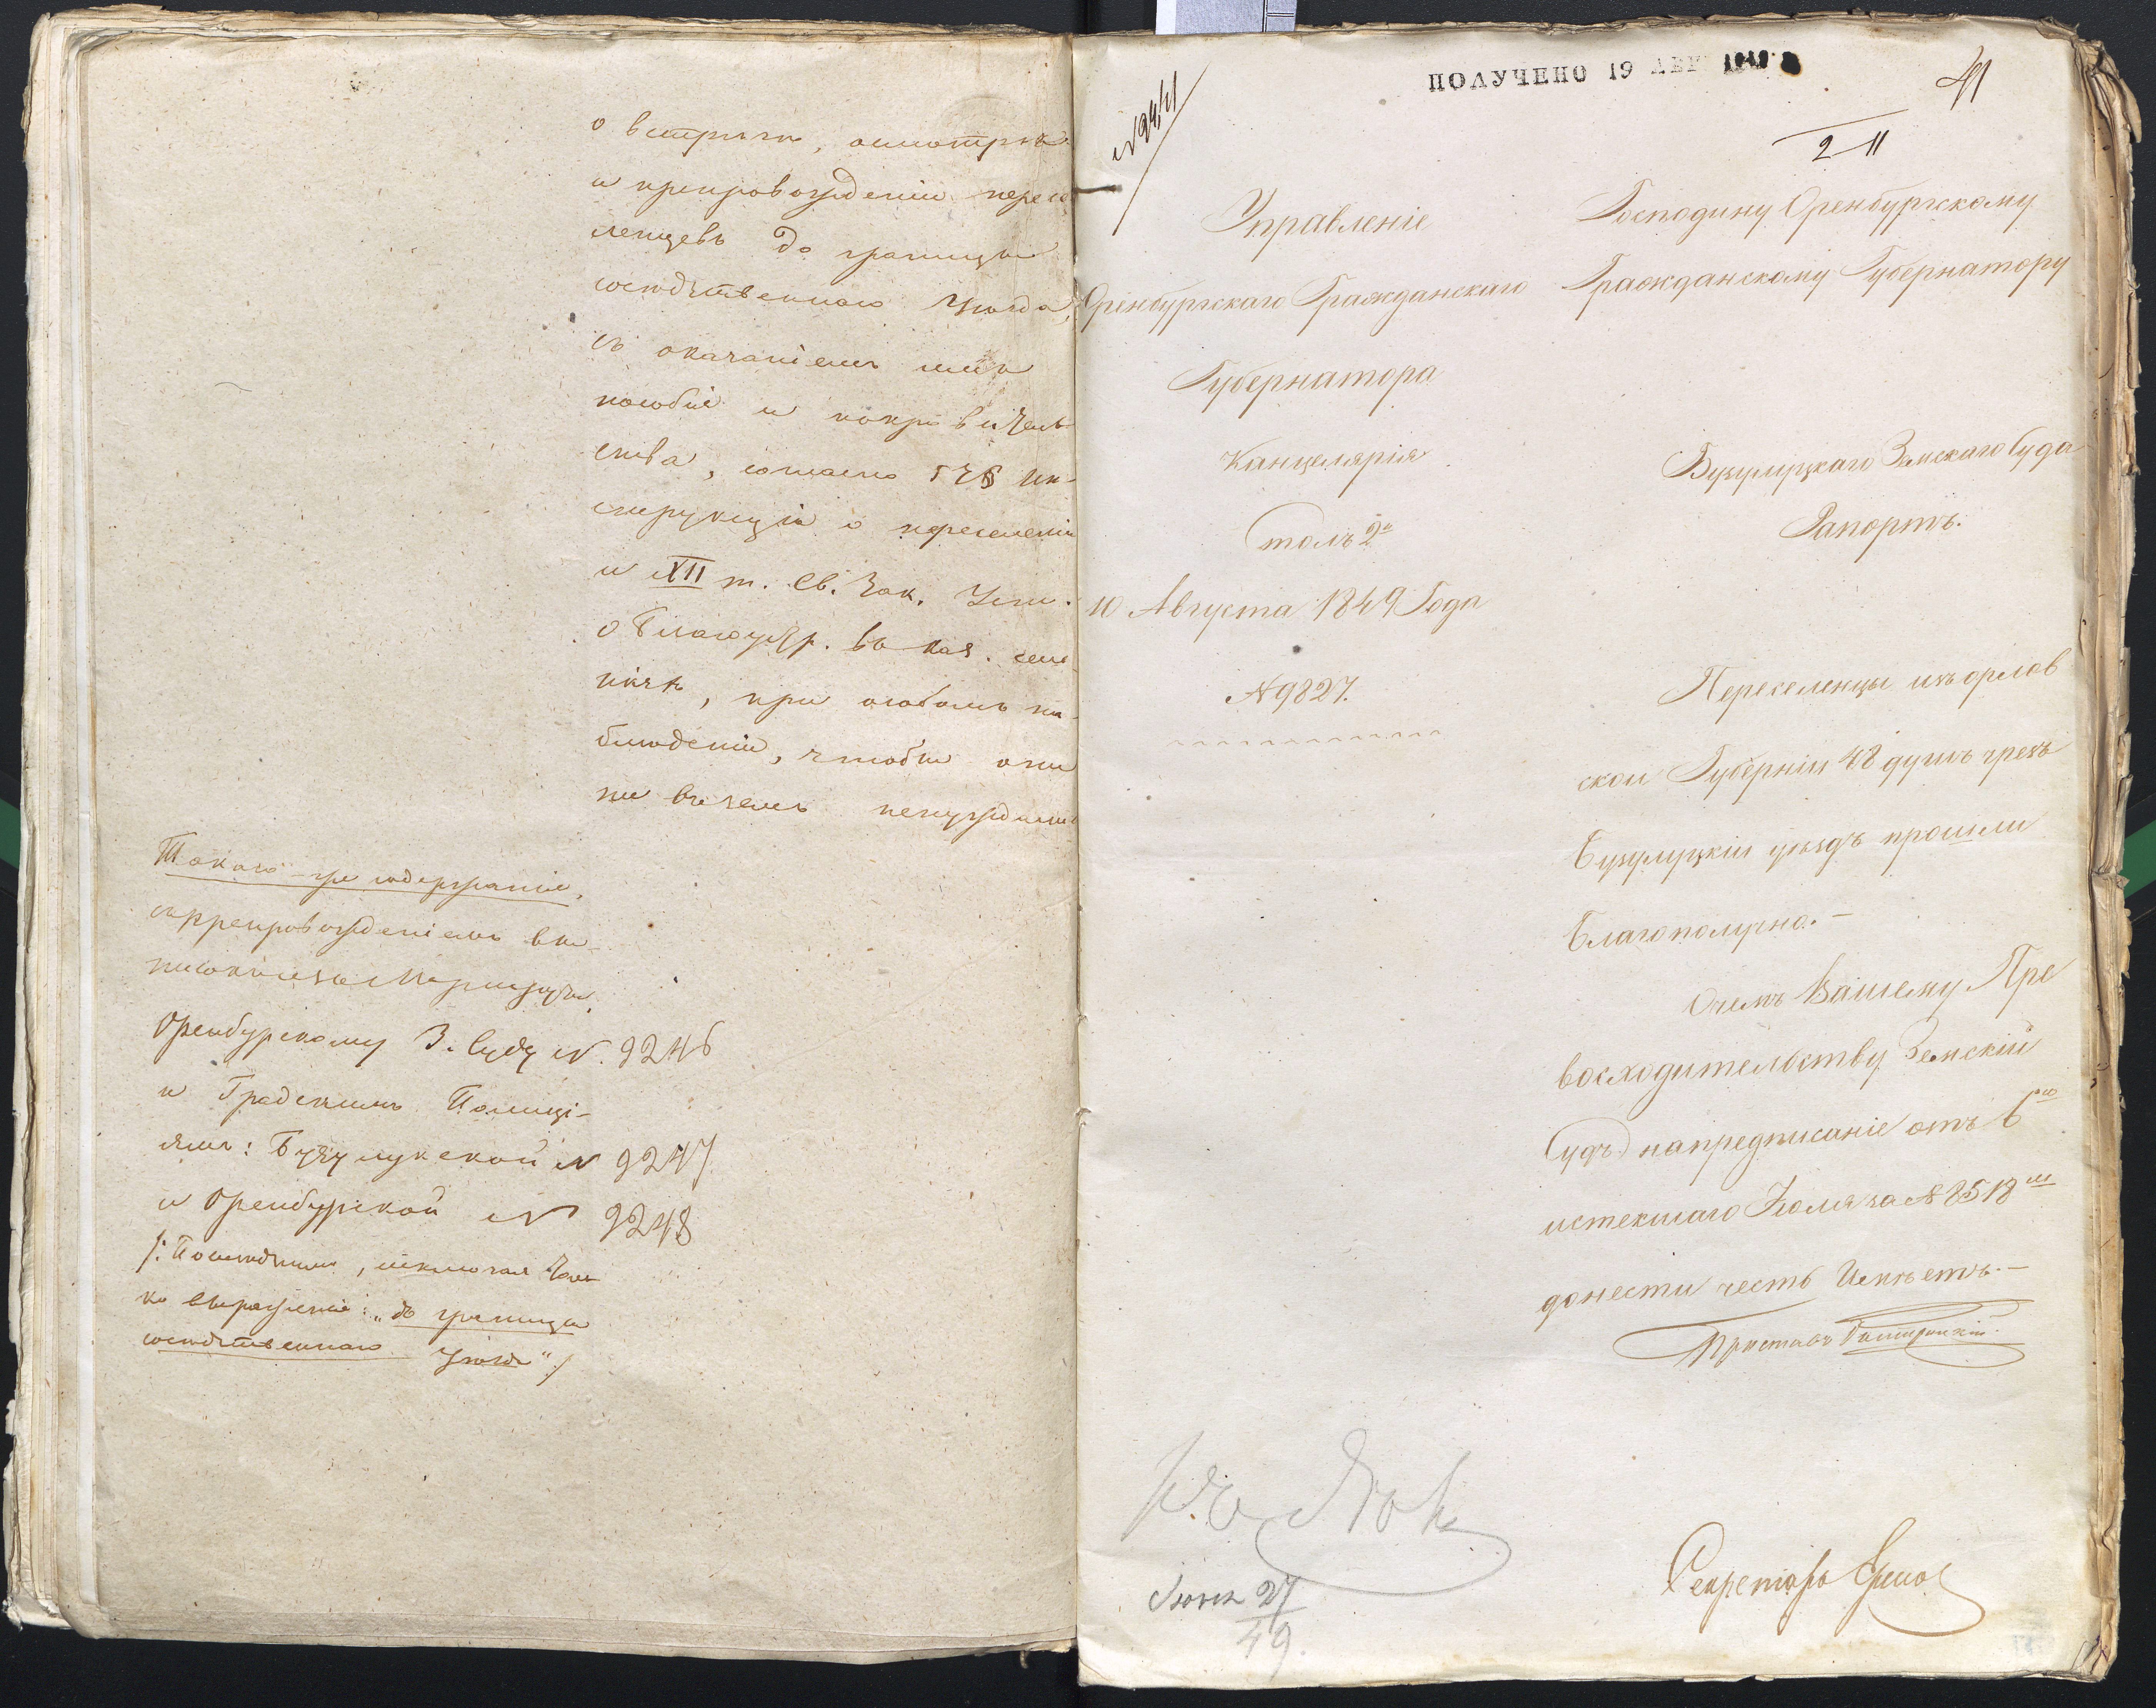 о встречѣ, осмотрѣ
и препровожденіи пересе
ленцевъ до границы
сосѣдственнаго Уѣзда,
съ оказаніемъ имъ
пособія и покровитель
ства, согласно § Ин
струкціи о переселеніи
и XII т. Св. Зак. Уст.
о Благоустр. въ каз. селе
ніяхъ, при особомъ на
блюденіи, чтобы они
ни въ чемъ ненуждались
Такого-же содержанія,
съ препровожденіемъ вы
писокъ изъ Маршрута,
Оренбургскому З. Суду N. 9246
и Градскимъ Полиці-
ямъ: Бузулукской N 9247
и Оренбургской N 9248
/: Послѣднимъ, исключая толь
ко выраженія: „до границы
сосѣдственнаго Уѣзда“ /
ПОЛУЧЕНО 19 АВГ 1849
41
2 11
Управленіе
Оренбургскаго Гражданскаго
Губернатора
Канцелярія
Столъ 2й
10 Августа 1849 Года
N 9827.
Господину Оренбургскому
Гражданскому Губернатору
Бузулуцкаго Земскаго Суда
Рапортъ.
Переселенцы изъ орлов
ской Губерніи 48 душъ чрезъ
Бузулуцкій уѣздъ прошли
благополучно.-
О чемъ Вашему Пре
восходительству Земскій
Судъ на предписаніе отъ 6го
истекшаго Іюля за N 8518м
донести честь Имѣетъ.-
Приставъ
Секретарь
27
49.